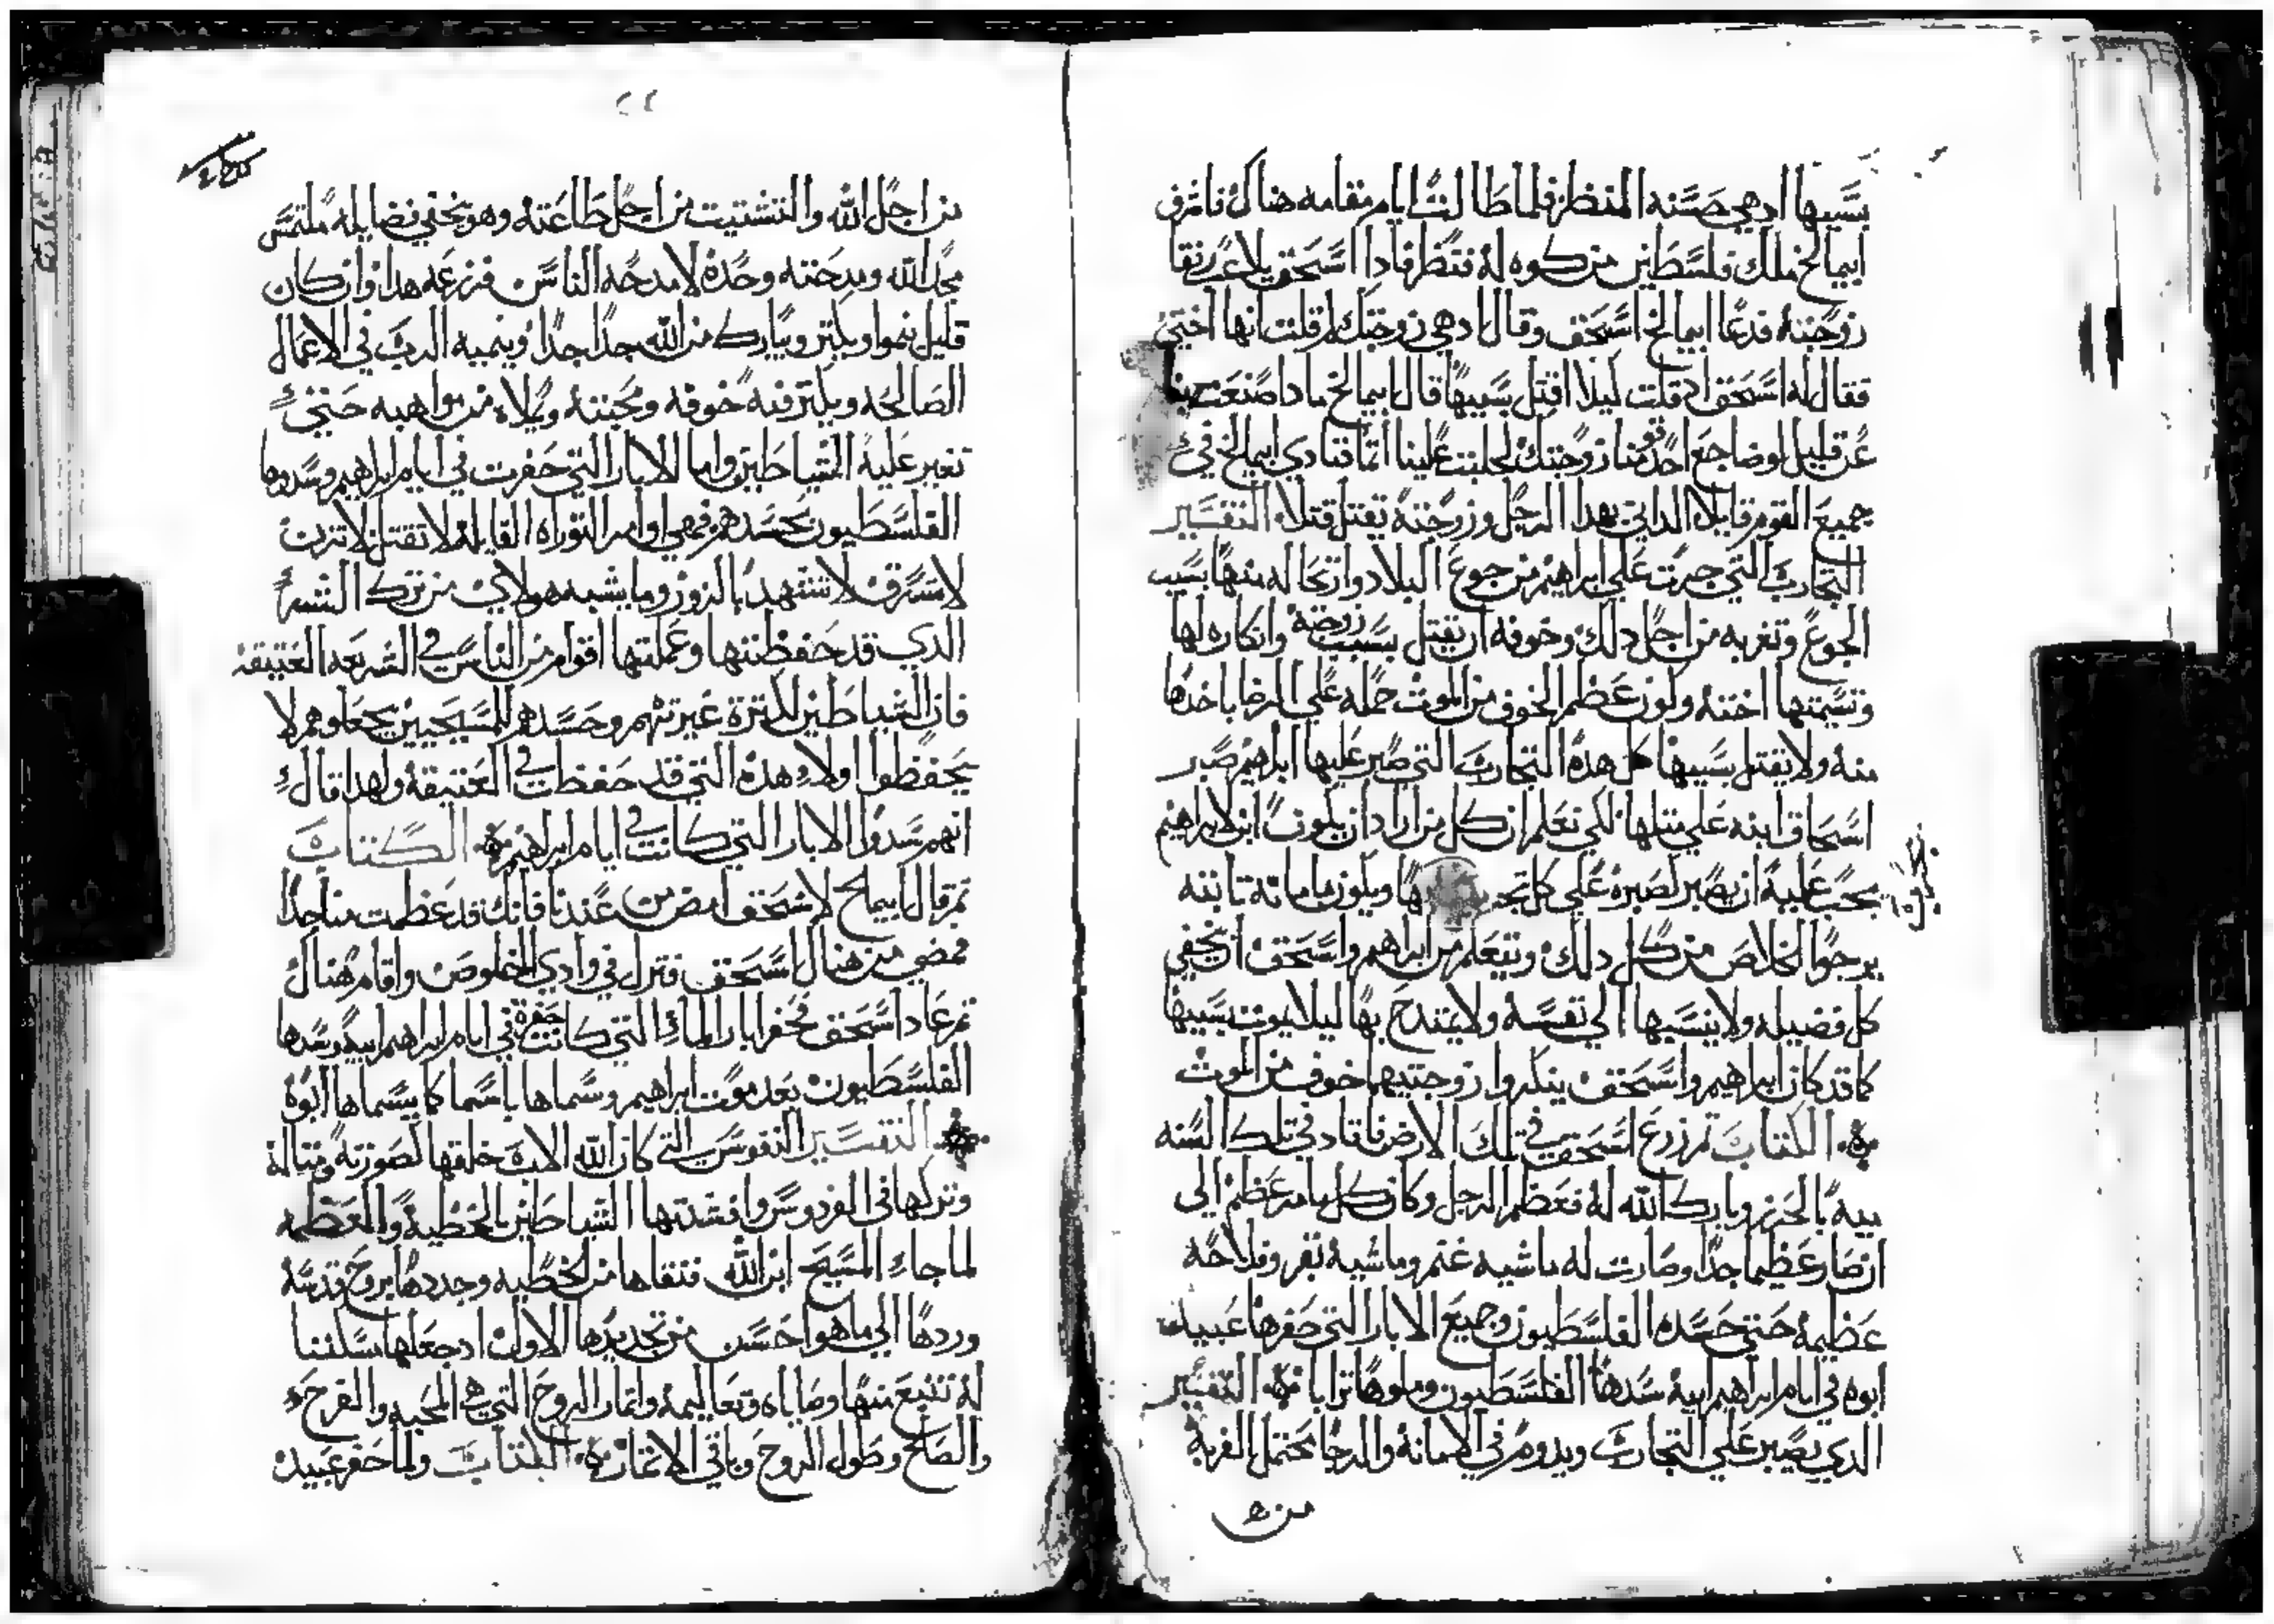 بسببها اد هي حسنه المنظر فلما طالت ايام مقامه هناك فاشرف
ابيمالخ ملك فلسطين من كوه له فنظر فادا اسحق يلاعب رفقا
زوجته فدعا ابيمالخ اسحق وقال اد هي زوجتك لم قلت انها اختي
فقال له اسحق اد قلت ليلا اقتل بسببها قال ابيمالخ مادا صنعت بنا
عن قليل لو ضاجع احد قومنا زوجتك لجلبت علينا اتما فنادي ابيمالخ في
جميع القوم قايلا الداني بهدا الرجل وزوجته يقتل قتلا التفسير
التجارب التي جرت علي ابراهيم من جوع البلاد وارتحاله منها بسبب
الجوع وتغربه من اجل دلك وخوفه ان يقتل بسبب زوجته وانكاره لها
وتسميتها اخته ولون عظم الخوف من الموت حمله علي الرضا باخدها
منه ولا يقتل بسببها كل هده التجارب التي صبر عليها ابراهيم صبر
اسحاق ابنه علي متلها لكي نعلم ان كل من اراد ان يكون ابن لابراهيم
يجب عليه ان يصبر لصبره علي كل ويكون بامانة تابته
يرجوا الخلاص من كل دلك ونتعلم من ابراهيم واسحق ان نخفي
كل فضيله ولا ينسبها الي نفسه ولا يمتدح بها ليلا يموت بسببها
كما قد كان ابراهيم واسحق ينكروا زوجتيهما خوف من الموت
الكتاب تم زرع اسحق في تلك الارض فافاد في تلك السنه
بيه بالحرز وبارك الله له فعظم الرجل وكان كل يامر عظم الي
ان صار عظيما جدا وصارت له ماشيه غنم وماشية بقر وفلاحه
عظيمه حتي حسده الفلسطيون وجميع الابار التي حفرها عبيد
ابوه في ايام ابراهيم ابيه سدها الفلسطيون وملوها ترابا التفسير
الدي يصبر علي التجارب ويدوم في الامانه والرجا يحتمل الغربة
من
من اجل الله والتشتيت من اجل طاعته وهو يخفي فضايله ملتمس
مجد الله ومدحته وحده لا مدحه الناس فزرعه هدا وان كان
قليل ينموا ويكتر ويبارك من الله جدا جدا وينميه الرب في الاعمال
الصالحه ويكتر فيه خوفه ومحبته ويملاه من مواهبه حتي
تغير عليه الشياطين واما الابار التي حفرت في ايام ابراهيم وسدوها
الفلسطيون بحسدهم فهي اوامر التوراه القايله لا تقتل لا تزن
لا تسرق لا تشهد بالزور وما يشبه هولاي من ترك الشر
الدي قد حفظتها وعملتها اقوام من الناس في الشريعه العتيقه
فان الشياطين لكترة غيرتهم وحسدهم للمسيحيين يجعلوهم لا
يحفظوا اولاء وهده التي قد حفظت في العتيقة ولهدا قال
انهم سدوا الابار التي كانت في ايام ابراهيم الكتاب
تم قال ابيمالح لاسحق امض من عندنا فانك قد عظمت منا جدا
فمضي من هنال اسحق فنزل في وادي الخلوص واقام هناك
تم عاد اسحق فحفر ابار الماء التي كانت حفرت في ايام ابراهيم ابيه وسدها
الفلسطيون بعد موت ابراهيم وسماها باسما كما يسماها ابوه
التفسير النفوس التي كان الله الاب خلقها لصورته ومتاله
وتركها في الفردوس وافسدتها الشياطين بالخطية والعظمه
لما جاء المسيح ابن الله فنقاها من الخطيه وجددها بروح قدسه
وردها الي ما هو احسن من تجديدها الاول اد جعلها مسكننا
له تنبع منها وصاياه وتعاليمه واتمار الروح التي هي المحبه والفرح
والصلح وطول الروح وباقي الاتمار الكتاب ولما حفر عبيد